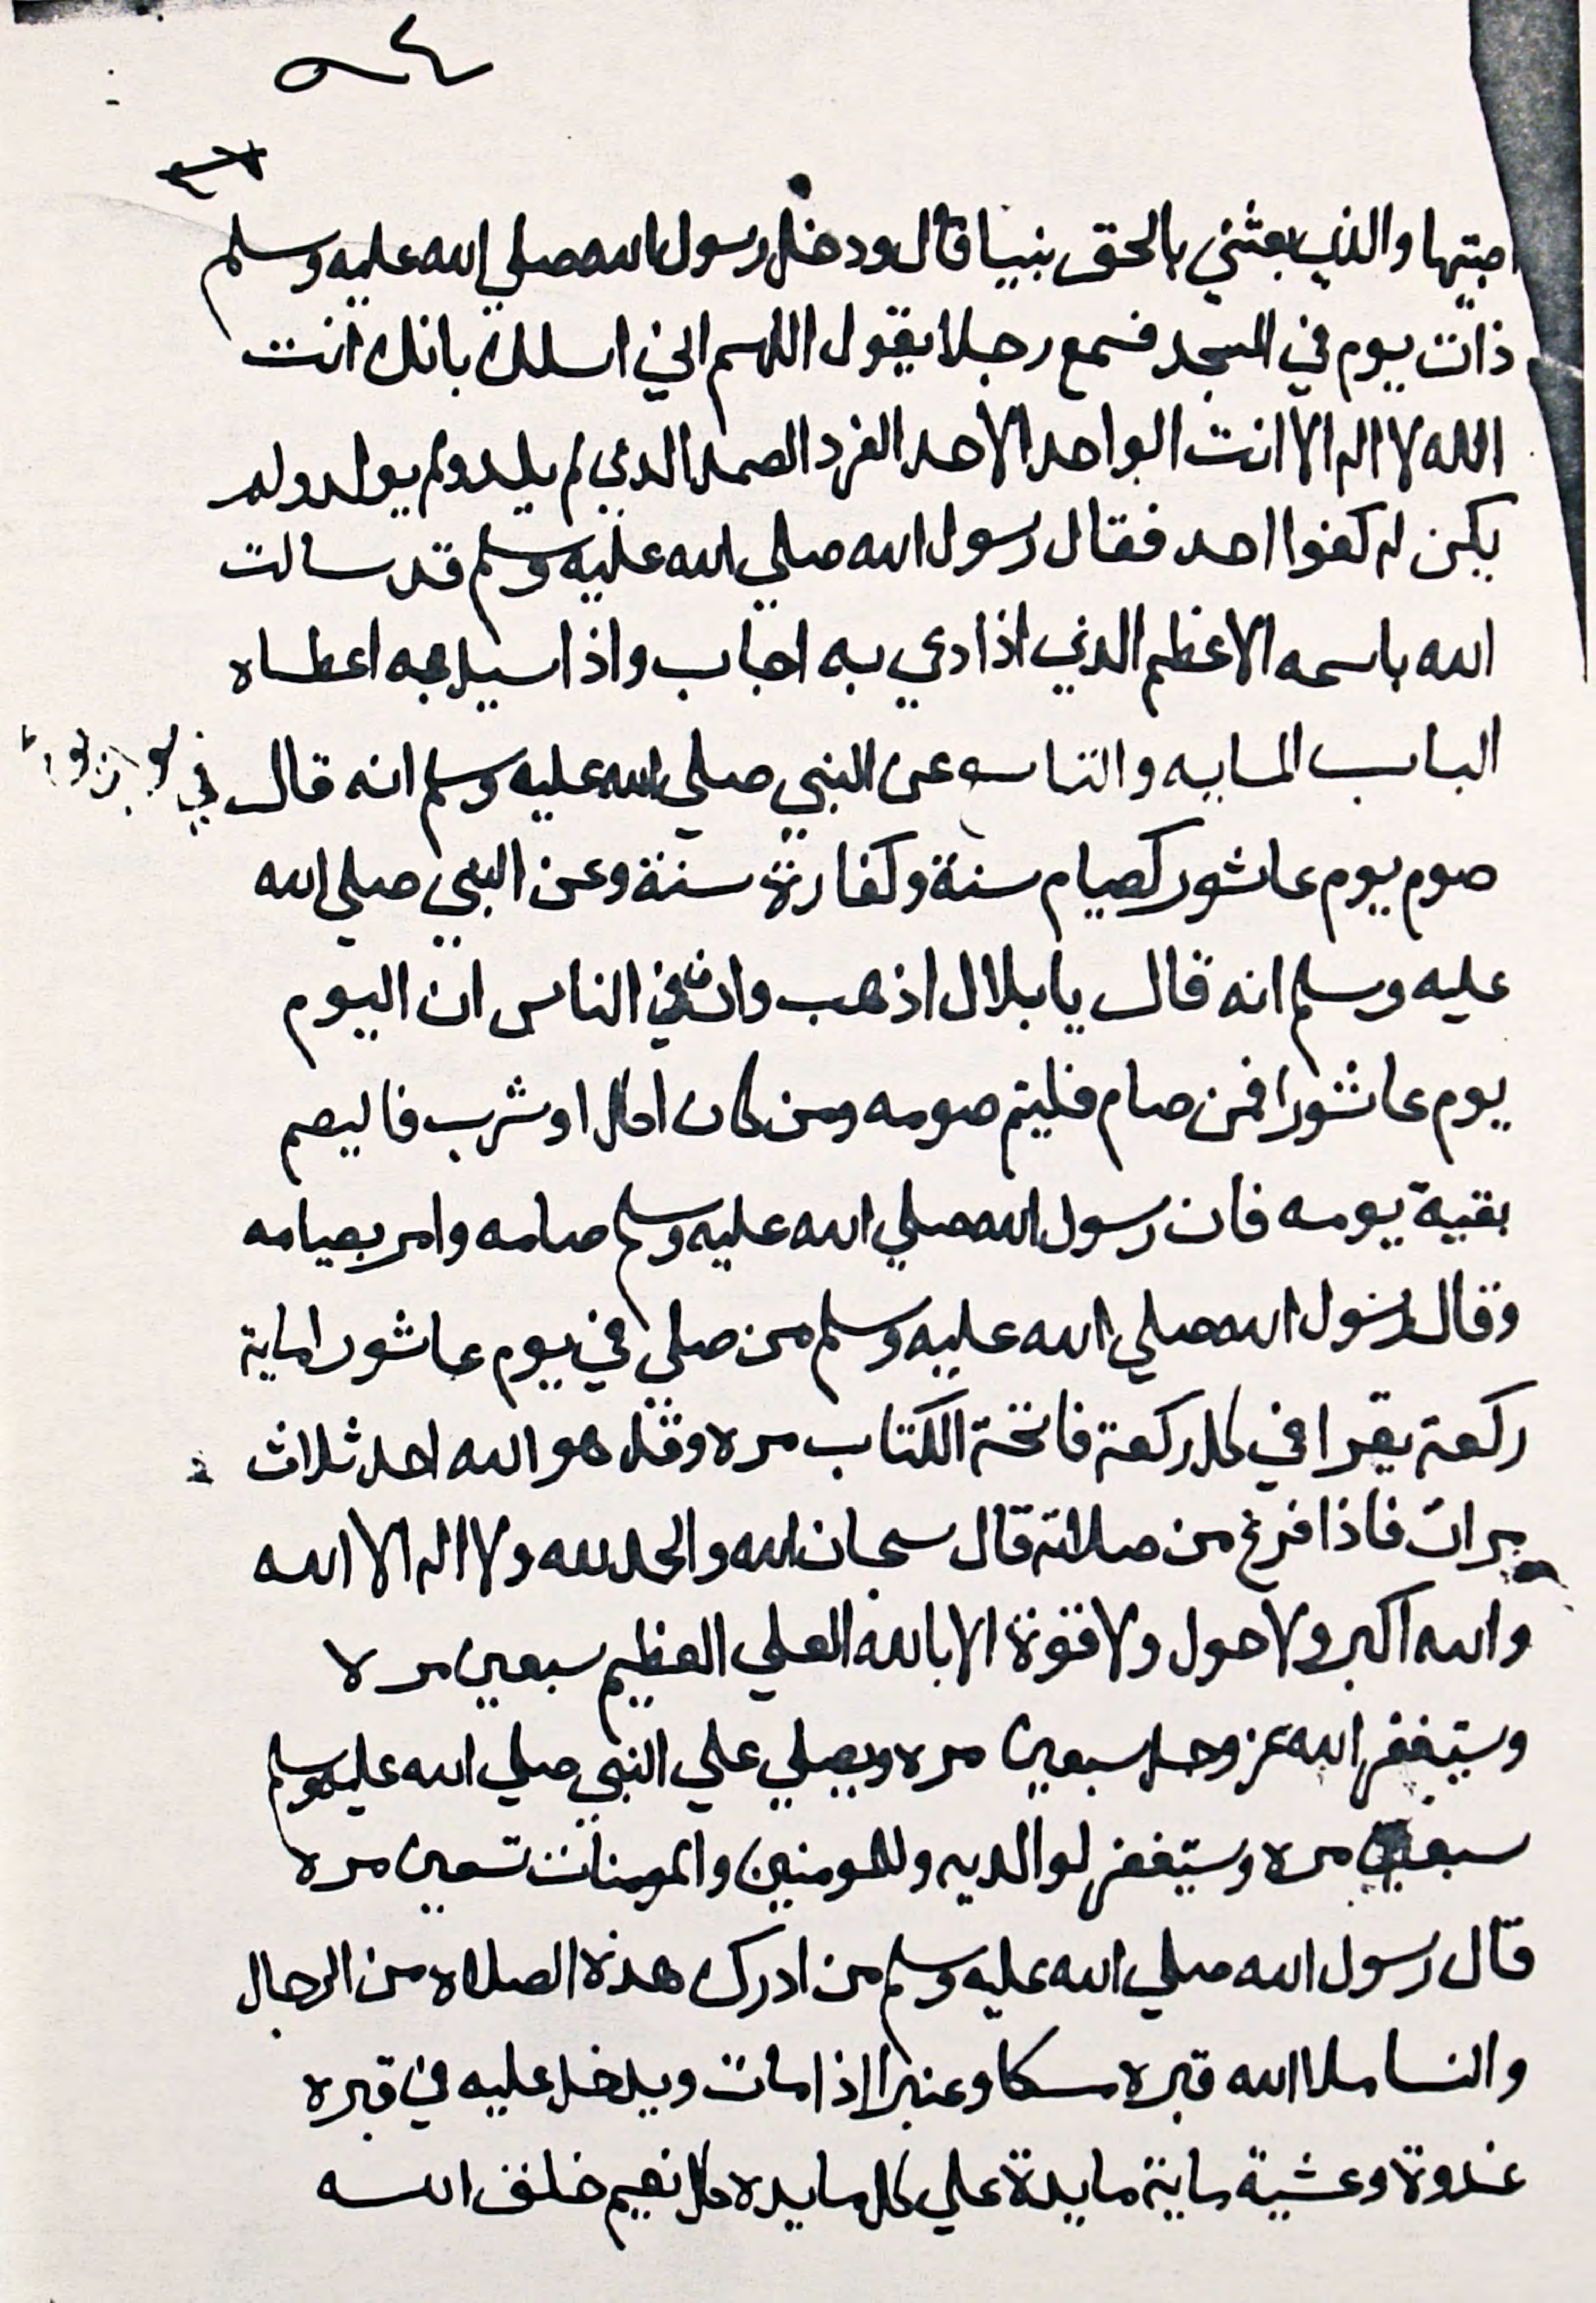 اجبتها والذي بعثني بالحق نبيا قال ودخل رسول الله صلي الله عليه وسلم
ذات يوم في المسجد فسمع رجلا يقول اللهم اني اسلك بانك انت
الله لا اله الا انت الواحد الاحد الفرد الصمد الدي لم يلد ولم يولد ولم
يكن له كفوا احد فقال رسول الله صلي الله عليه وسلم قد سالت
الله باسمه الاعظم الدي اذا دعي به اجاب واذا سيل به اعطاه
الباب المايه والتاسع عن النبي صلي الله عليه وسلم انه قال في
صوم يوم عاشور كصيام سنة وكفارة سنة وعن النبي صلي الله
عليه وسلم انه قال يا بلال اذهب واذن في الناس ان اليوم
يوم عاشورا فمن صام فليتم صومه ومن كان اكل او شرب فاليصم
بقية يومه فان رسول الله صلي الله عليه وسلم صامه وامر بصيامه
وقال رسول الله صلي الله عليه وسلم من صلي في يوم عاشورا ماية
ركعة يقرا في كل ركعة فاتحة الكتاب مره وقل هو الله احد ثلاث
مرات فاذا فرغ من صلاته قال سبحان الله والحمد لله ولا اله الا الله
والله اكبر ولا حول ولا قوة الا بالله العلي العظيم سبعين مره
وستيغفر الله عز وجل سبعين مره ويصلي علي النبي صلي الله عليه وسلم
سبعين مره وستيغفر لوالديه وللمومنين والمومنات تسعين مره
قال رسول الله صلي الله عليه وسلم من ادرك هذه الصلاه من الرجال
والنسا ملا الله قبره مسكا وعنبرا اذا مات ويدخل عليه في قبره
غدوة وعشية ماية مايدة علي كل مايده كل نعيم خلق الله